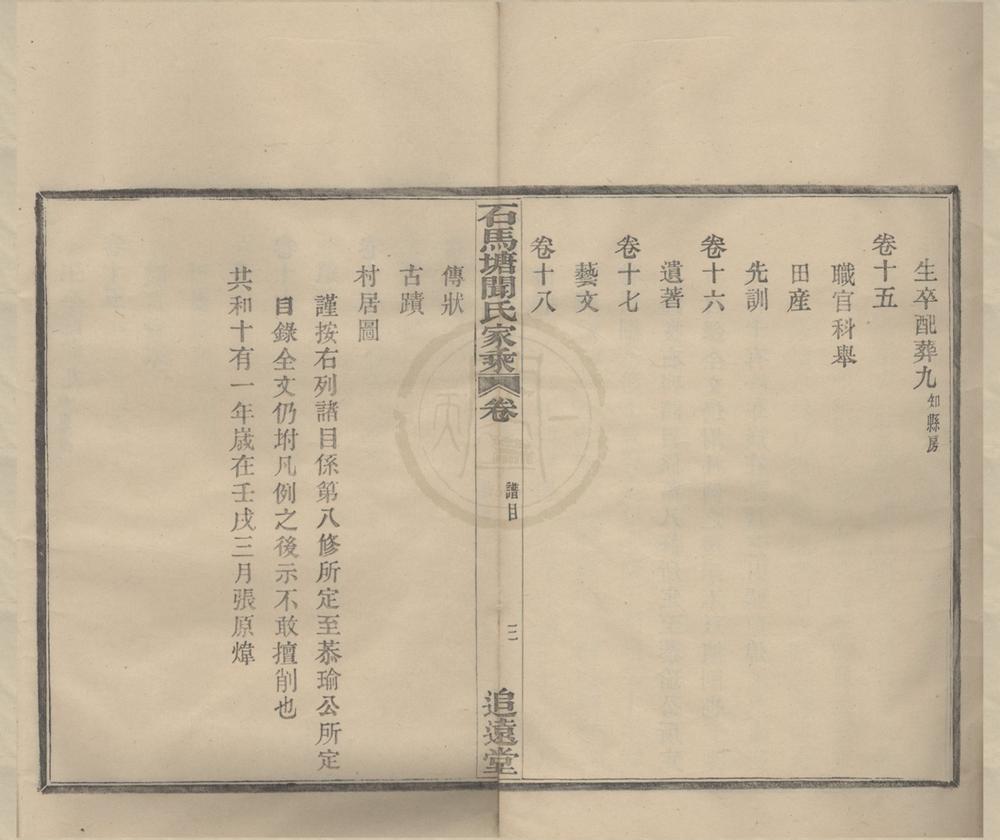 生卒配葬九知縣房
卷十五
職官科舉
田産
先訓
卷十六
遺著
卷十七
藝文
卷十八
石馬塘聞氏家乘 卷 譜目 三 追遠堂
傳狀
古蹟
村居圖
謹按右列諸目係第八修所定至恭瑜公所定
目錄全文仍坿凡例之後示不敢擅削也
共和十有一年歲在壬戌三月張原煒